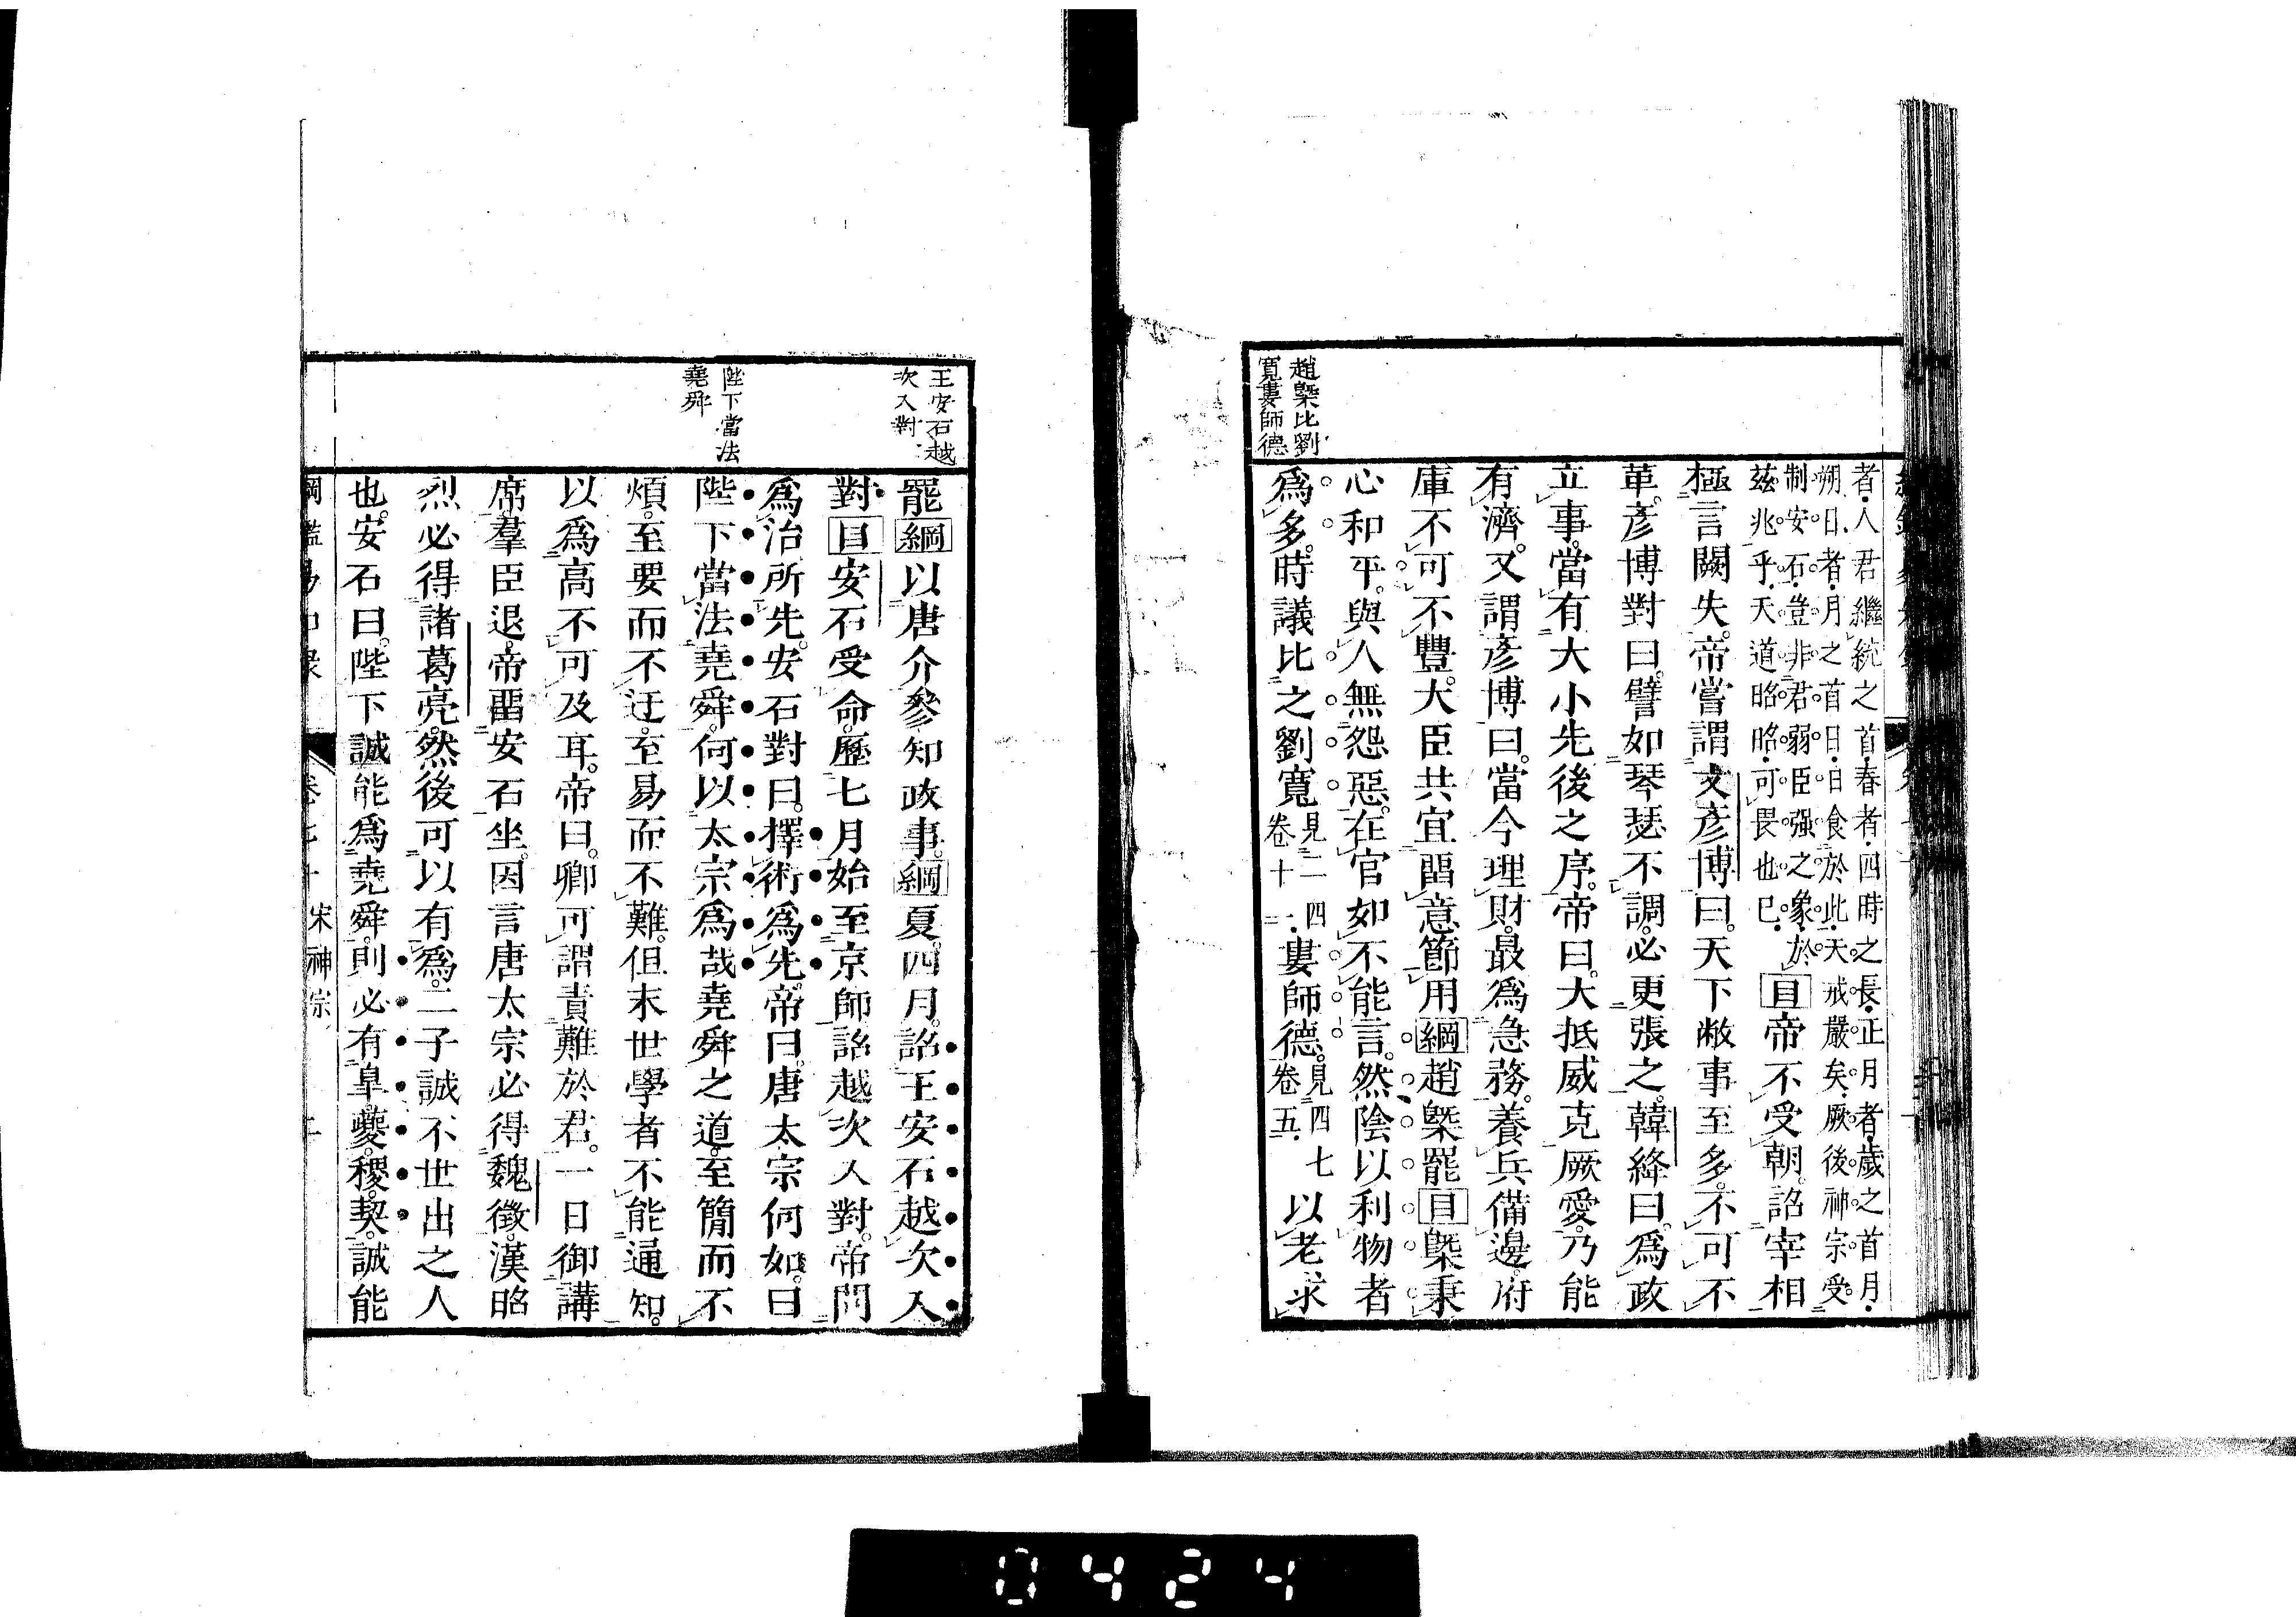 趙槩比劉
寬婁師德
者人君繼統之首春者四時之長正月者歲之首月
朔日者月之首日日食於此天戒嚴矣厥後神宗受
制安石豈非君弱臣强之象於
兹兆乎天道昭昭可畏也已
目帝不受朝詔宰相
極言闕失帝嘗謂文彥博曰天下敝事至多不可不
革彥博對曰譬如琴瑟不調必更張之韓絳曰爲政
立事當有大小先後之序帝曰大抵威克厥愛乃能
有濟又謂彥博曰當今理財最爲急務養兵備邊府
庫不可不豐大臣共宜畱意節用綱趙槩罷目槩秉
心和平與人無怨惡在官如不能言然陰以利物者
爲多時議比之劉寬見二四卷十二婁師德見四七卷五以老求
王安石越
次入對
陛下當法
堯舜
罷綱以唐介參知政事綱夏四月詔王安石越次入
對目安石受命歷七月始至京師詔越次入對帝問
爲治所先安石對曰擇術爲先帝曰唐太宗何如曰
陛下當法堯舜何以太宗爲哉堯舜之道至簡而不
煩至要而不迂至易而不難但末世學者不能通知
以爲高不可及耳帝曰卿可謂責難於君一日御講
席羣臣退帝畱安石坐因言唐太宗必得魏徵漢昭
烈必得諸葛亮然後可以有爲二子誠不世出之人
也安石曰陛下誠能爲堯舜則必有皐夔稷契誠能
綱鑑易知錄 卷七十 宋神宗
0424